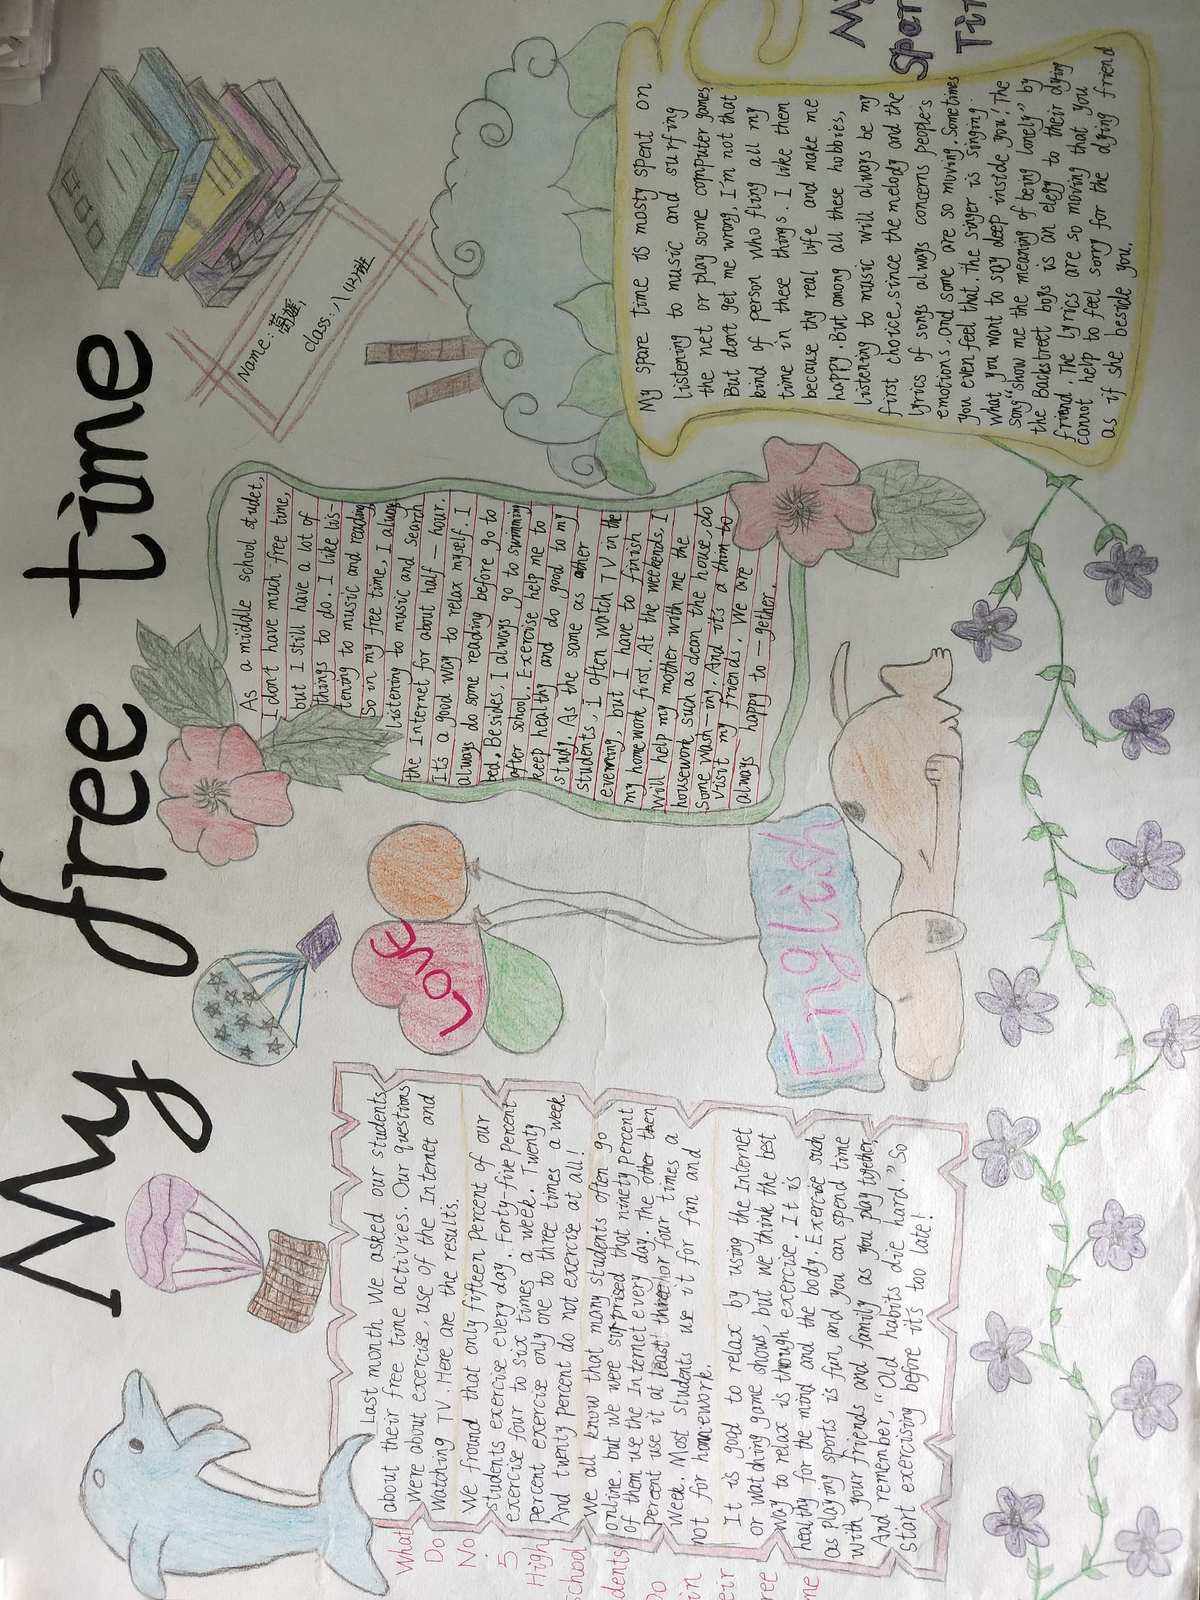 My free time
What
Do
No
5
High
school
dents
Do
in
eir
ree
me
Last month we asked our students
about their free time activires. Our questions
were about exercise, use of the Internet and
watching TV. Here are the results.
We fround that only fifteen percent of our
students exercise every day. Forty-five percent
exercise four to six times a week. Twenty
percent exercise only one to three times a week.
And twenty percent do not exercise at all!
We all know that many students often go
online. but we were surprised that ninety percent
of them use the Internet every day. The other then
percent use it at least three or four times a
week. Most students use it for fun and
not for homework.
It is good to relax by using the Internet
or watching game shows, but we think the best
way to relax is though exercise. It is
healthy for the mind and the body. Exercise such
as playing sports is fun, and you can spend time
with your friends and family as you play together.
And remember, "Old habits die hard." So
start exercising before it's too late!
Love
English
As a middle school studet,
I don't have much free time,
but I still have a lot of
things to do. I like lis-
tening to music and reading
So in my free time, I always
listening to music and search
the Internet for about half - hour.
It's a good way to relax myself. I
always do some reading before go to
bed. Besides, I always go to swimming
after school. Exercise help me to
keep healthy and do good to my
study. As the same as other
students, I often watch TV in the
evenning, but I have to finish
my homework first. At the weekends. I
will help my mother with me the
housework such as clean the house, do
some wash-ing. And it's a thim to
visit my friends. We are
always happy to - gether.
Name:
class: 八(12)班
My
Spar
Tir
My spare time is mosty spent on
listening to music and surfing
the net or play some computer games.
But don't get me wrong, I'm not that
kind of person who fling all my
time in these things. I like them
because thy real life and make me
happy. But among all these hobbies,
listening to music will always be my
first choice. since the melody and the
lyrics of songs always concerns people's
emotions, and some are so moving. Sometimes
you even feel that. the singer is singing
what you want to say deep inside you. The
song "show me the meaning of being lonely" by
the Backstreet boys is an elegy to their dying
friend. The lyrics are so moving that you
cannot help to feel sorry for the dying friend
as if she beside you.